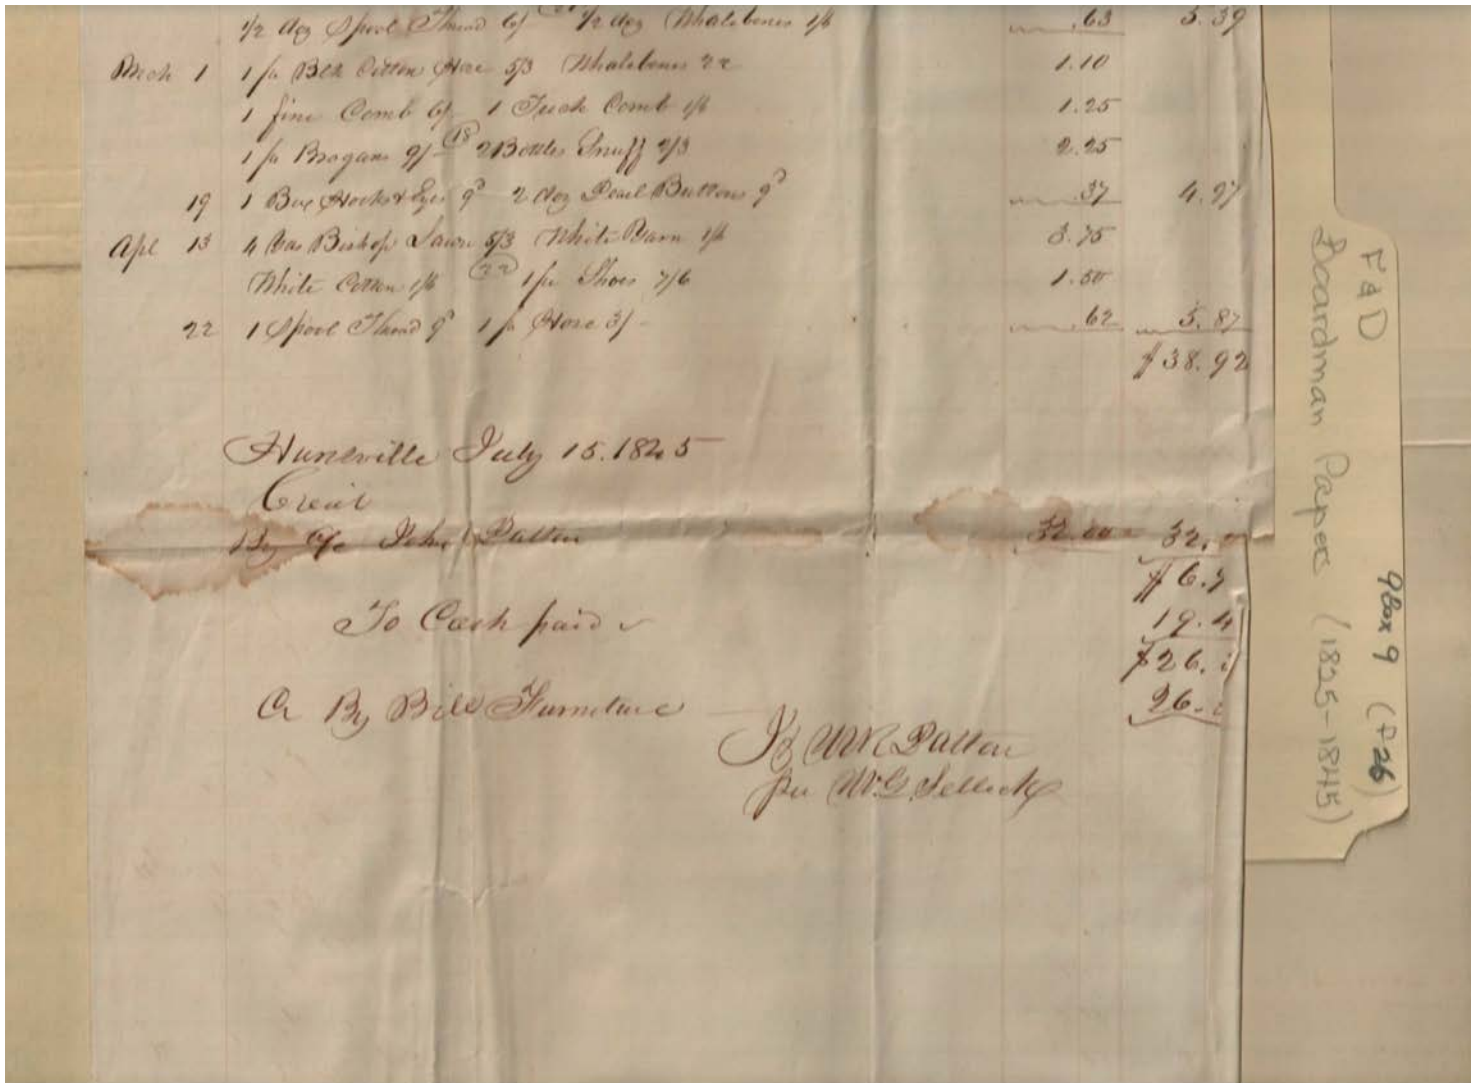 1/2 doz Spool Thread 6/ 1/2 doz Whalebones 1/6 .63 5.39
Mch 1 1 pr Blk Cotton Hose 5/3 Whalebones 1.10
1 fine Comb 6/ 1 Tuck Comb 1/6 1.25
1 pr Brogans 9/ (18) 2 Bottles Snuff 2/3 2.25
19 1 Box Hooks & Eyes 9d 2 doz Pearl Buttons 9d .37 4.97
Apl 13 4 Yas Bishop Lawn 5/3 White Yarn 1/6 3.75
White Cotton 1/6 (22) 1 pr Shoes 7/6 1.50
22 1 Spool Thread 9d 1 pr Hose 3/- .62 5.87
$38.92
Hunsville July 15. 1845
Credit
By C/o John Patton 32.00 32.
$6.9
To Cash paid 19.4
$26.
Cr By Bill Furniture 26.
J & WR Patton
per W.G. Sellick
F & D
Boardman Papers (1825-1845)
Box 9 (F-26)